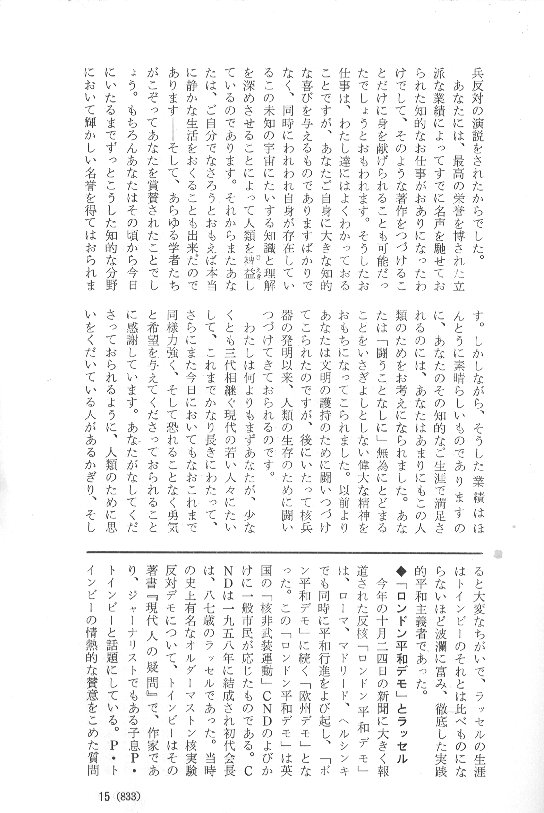 兵反対の演説をされたからでした。
あなたには、最高の栄誉を博された立
派な業績によってすでに名声を馳せてお
られた知的なお仕事がおありになったわ
けでして、そのような著作をつづけるこ
とだけに身を献げられることも可能だっ
たでしょうとおもわれます。そうしたお
仕事は、わたし達にはよくわかっておる
ことですが、あなたご自身に大きな知的
な喜びを与えるものでありますばかりで
なく、同時にわれわれ自身が存在してい
るこの未知の宇宙にたいする知識と理解
を深めさせることによって人類を裨益し
ているのであります。それからまたあな
たは、ご自分でなさろうとおもえば本当
に静かな生活をおくることも出来たので
あります──そして、あらゆる学者たち
がこぞってあなたを賞賛されたことでし
ょう。もちろんあなたはその頃から今日
にいたるまでずっとこうした知的な分野
において輝かしい名誉を得てはおられま
す。しかしながら、そうした業績はほ
んとうに素晴らしいものでありますの
に、あなたのその知的なご生涯で満足さ
れるのには、あなたはあまりにもこの人
類のためをお考えになられました。あな
たは「闘うことなしに」無為にとどまる
ことをいさぎよしとしない偉大な精神を
おもちになってこられました。以前より
あなたは文明の護持のために闘いつづけ
てこられたのですが、後にいたって核兵
器の発明以来、人類の生存のために闘い
つづけてきておられるのです。
わたしは何よりもまずあなたが、少な
くとも三代相継ぐ現代の若い人々にたい
して、これまでかなり長きにわたって、
さらにまた今日においてもなおこれまで
同様力強く、そして恐れることなく勇気
と希望を与えてくださっておられること
に感謝しています。あなたがなしてくだ
さっておられるように、人類のために思
いをくだいている人があるかぎり、そし
ると大変なちがいで、ラッセルの生涯
はトインビーのそれとは比べものにな
らないほど波瀾に富み、徹底した実践
的平和主義者であった。
◆「ロンドン平和デモ」とラッセル
今年の十月二十四日の新聞に大きく報
道された反核「ロンドン平和デモ」
は、ローマ、マドリード、ヘルシンキ
でも同時に平和行進をよび起し、「ボ
ン平和デモ」に続く「欧州デモ」とな
った。この「ロンドン平和デモ」は英
国の「核非武装運動」CNDのよびか
けに一般市民が応じたものである。C
NDは一九五八年に結成され初代会長
は、八七歳のラッセルであった。当時
の史上有名なオルダーマストン核実験
反対デモについて、トインビーはその
著書『現代人の疑問』で、作家であ
り、ジャーナリストでもある子息P・
トインビーと話題にしている。P・ト
インビーの情熱的な賛意をこめた質問
15 (833)